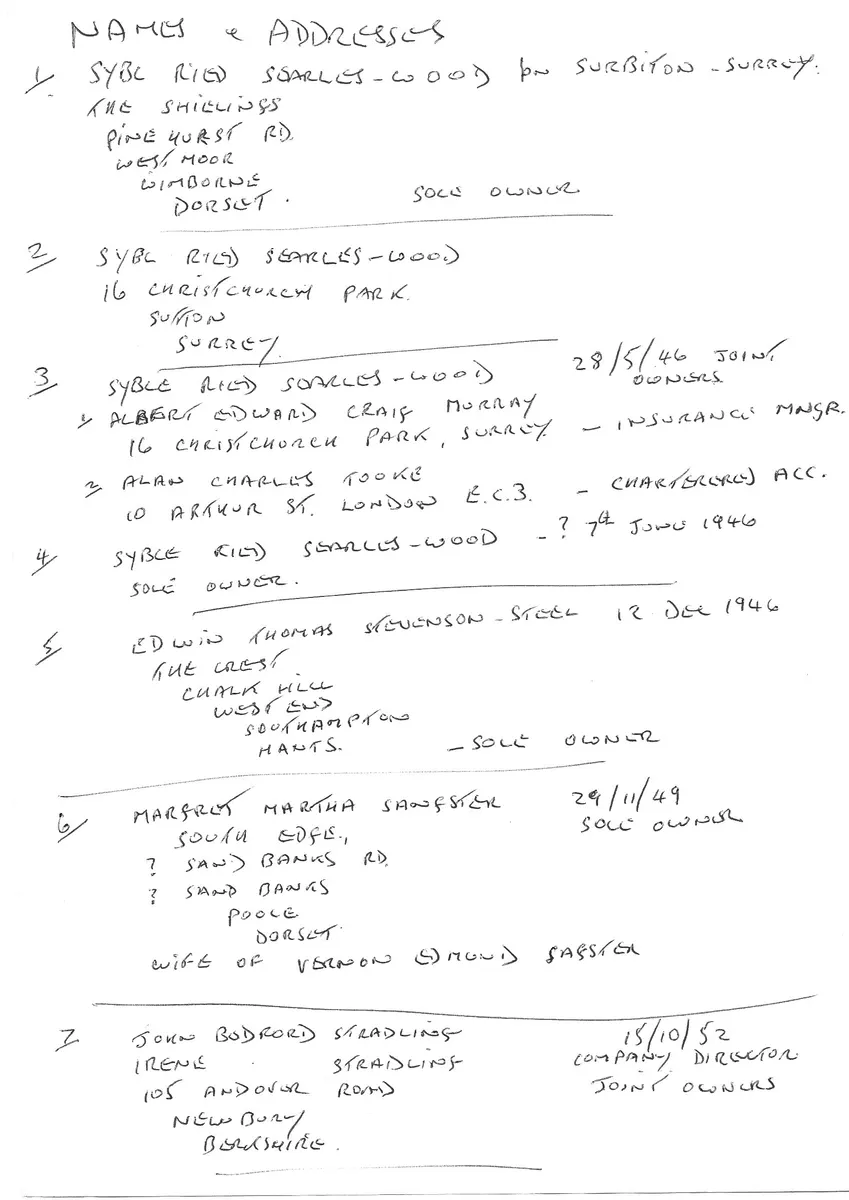 NAMES & ADDRESSES
1 SYBL RIED SEARLES-WOOD SURBITON - SURREY.
THE SHIELINGS
PINE HURST RD
WEST MOOR
WIMBORNE
DORSET. SOLE OWNER
2 SYBL RIED SEARLES-WOOD
16 CHRISTCHURCH PARK.
SUTTON
SURREY.
3 SYBLE RIED SEARLES-WOOD 28/5/46 JOINT OWNERS
1 ALBERT EDWARD CRAIG MURRAY
16 CHRISTCHURCH PARK, SURREY - INSURANCE MNGR.
2 ALAN CHARLES TOOKE
10 ARTHUR ST. LONDON E.C.3. - CHARTERERED ACC.
4 SYBLE RIED SEARLES-WOOD - ? 7th JUNE 1946
SOLE OWNER.
5 EDWIN THOMAS STEVENSON-STEEL 12 DEC 1946
THE CREST
CHALK HILL
WEST END
SOUTHAMPTON
HANTS. - SOLE OWNER
6 MARGRET MARTHA SANGSTER 29/11/49
SOUTH EDGE, SOLE OWNER
? SAND BANKS RD.
? SAND BANKS
POOLE
DORSET.
WIFE OF VERNON EDMOND SAGSTER
7 JOHN BODFORD STRADLING 15/10/52
IRENE STRADLING COMPANY DIRECTOR
105 ANDOVER ROAD JOINT OWNERS
NEWBURY
BERKSHIRE.